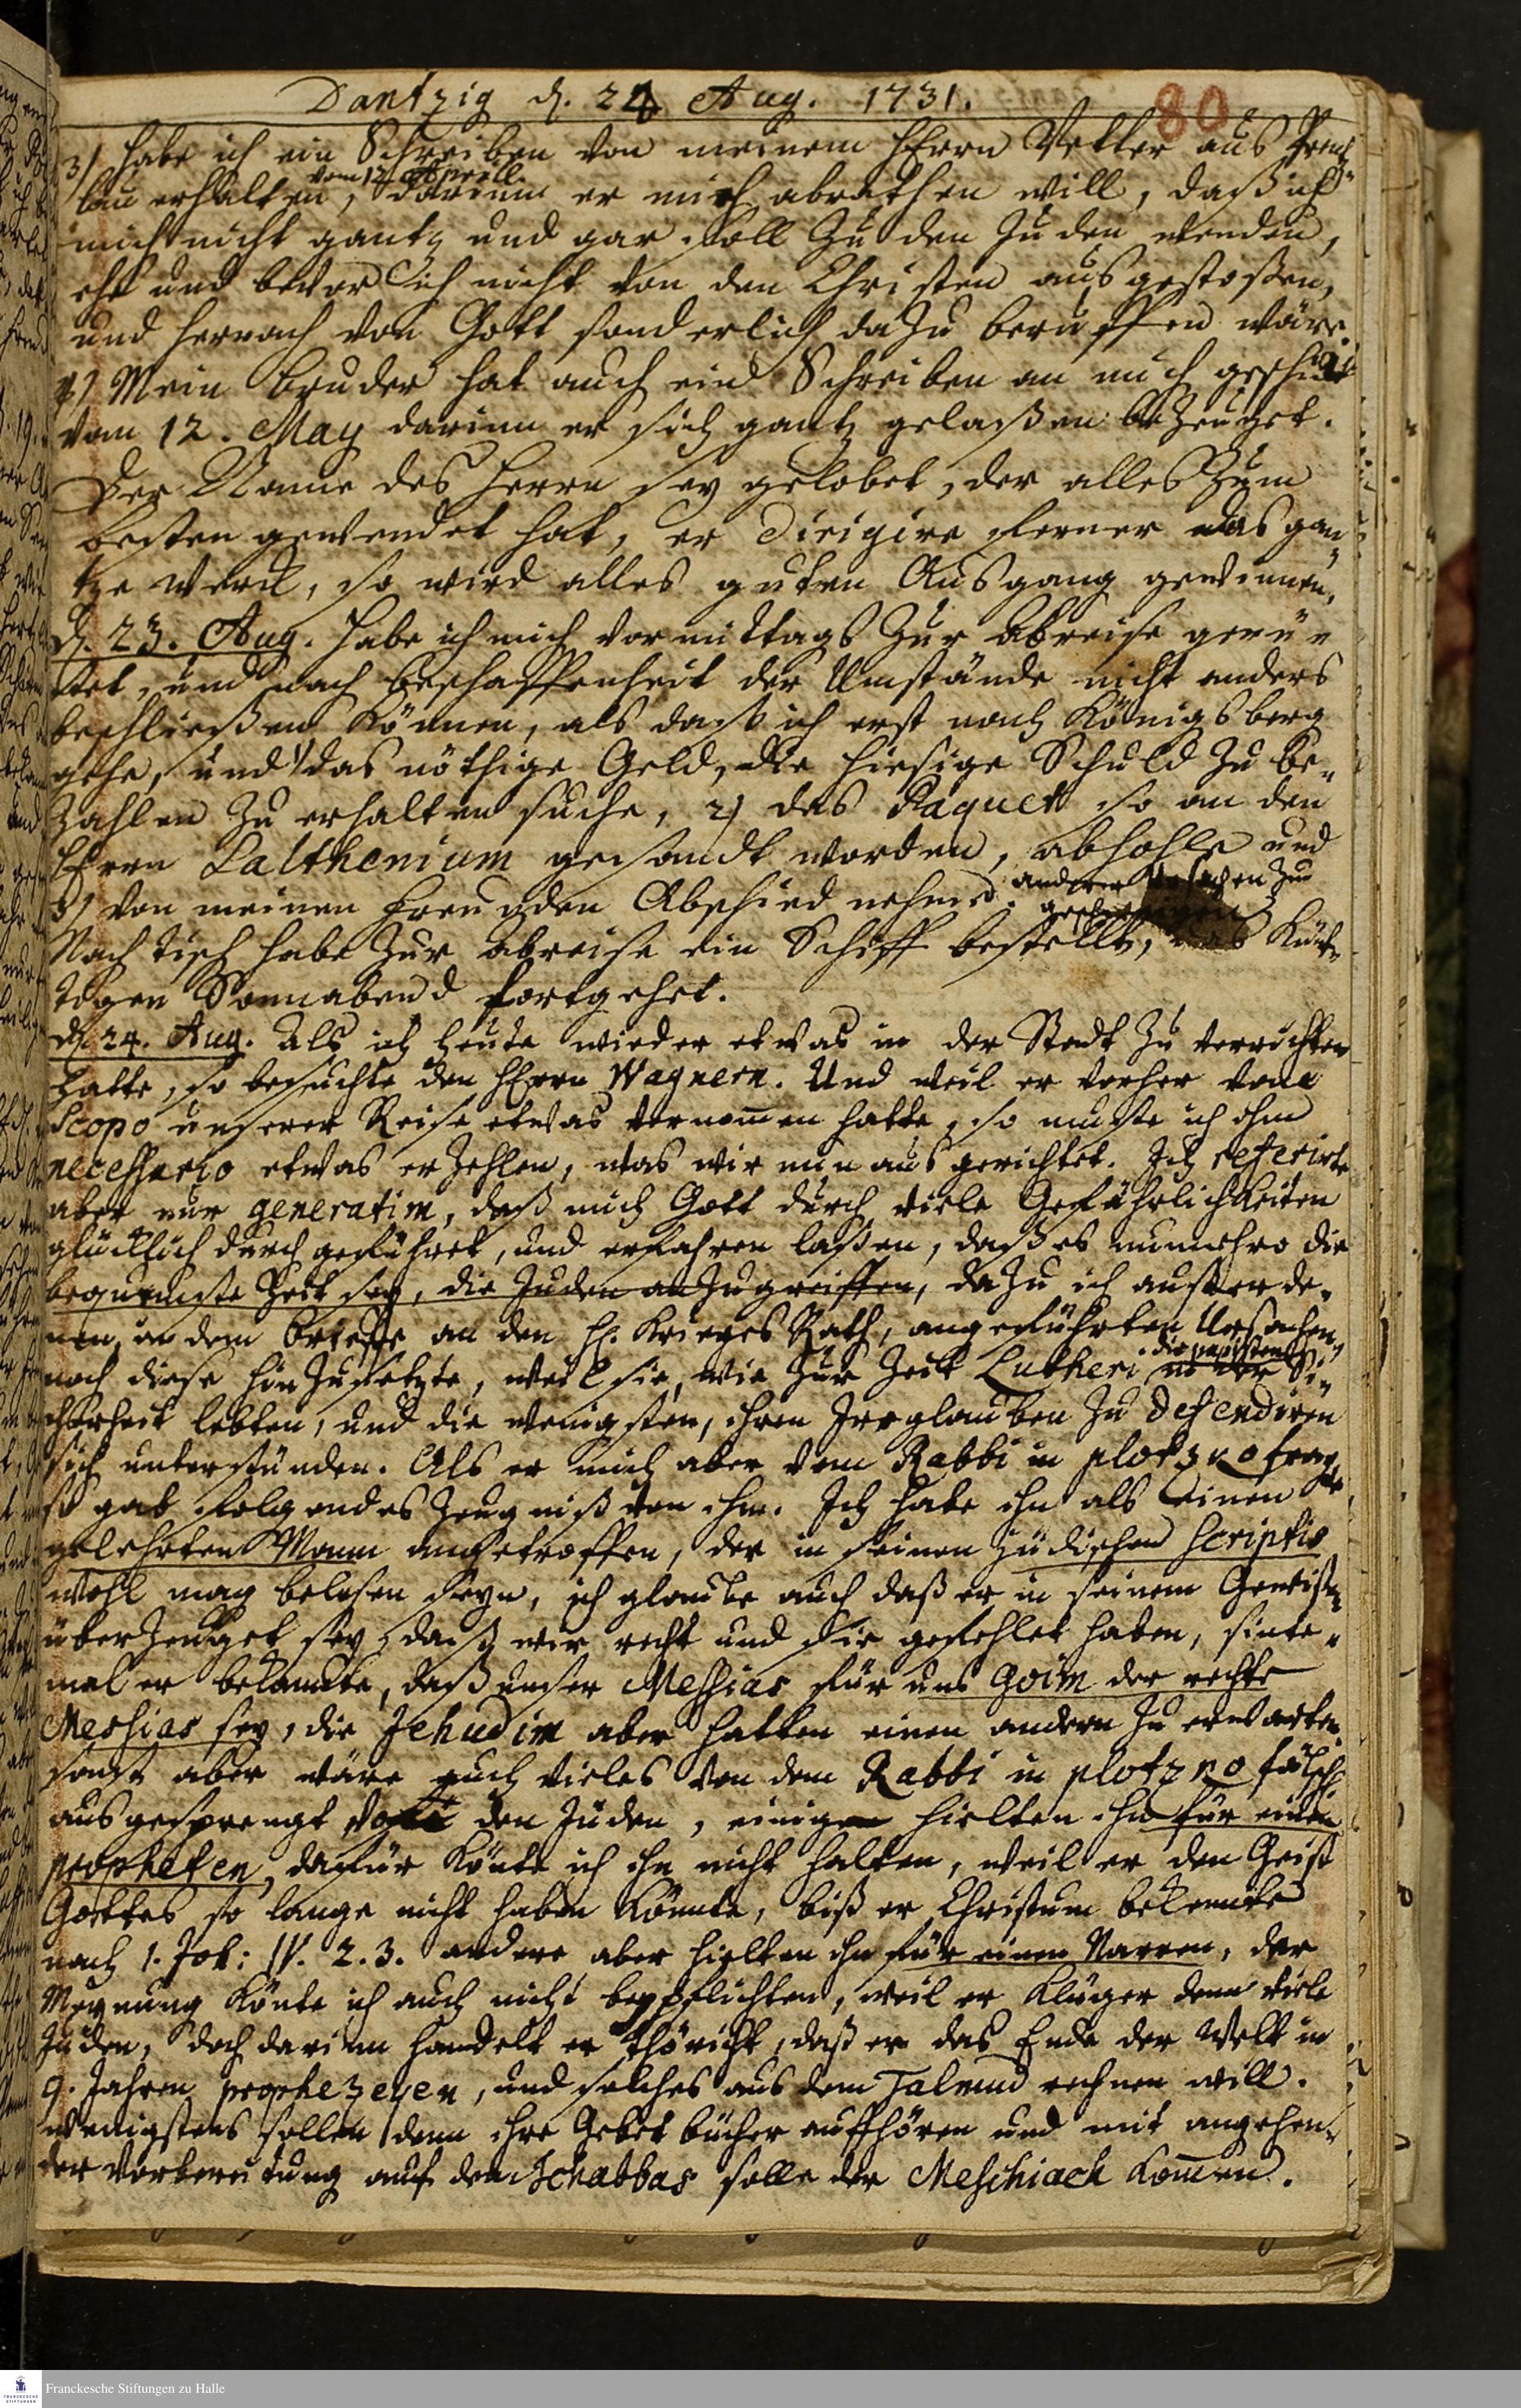 Dantzig d. 24 Aug. 1731.
80
3) habe ich ein Schreiben von meinem HErrn Vetter aus Prentz-
vom 12 Aprill.
lau erhalten, darinn er mich abrathen will, daß ich
mich nicht gantz und gar soll zu den Juden wenden,
ehe und bevor ich nicht von den Christen ausgestoßen,
und hernach von Gott sonderlich dazu beruffen wäre.
4) Mein Bruder hat auch ein Schreiben an mich geschickt
vom 12. May darinn er sich gantz gelaßen bezeuget.
Der Name des Herrn sey gelobet, der alles zum
besten gewendet hat, er dirigire ferner das gan-
tze werck, so wird alles guten Ausgang gewinnen.
d. 23. Aug. habe ich mich vormittags zur Abreise gerü-
stet, und nach Beschaffenheit der Umstände nicht anders
beschließen können, als daß ich erst nach Königsberg
gehe, und 1) das nöthige Geld, die hiesige Schuld zu be-
zahlen zu erhalten suche, 2) das Paquet so an den
HErrn Salthenium gesandt worden, abhohle und
3) von meinen Freunden Abschied nehme. anderer Ursachen zu
geschweigen
Nach Tisch habe zur abreise ein Schiff bestellt, das künf-
tigen Sonnabend fortgehet.
d. 24. Aug. Als ich heute wieder etwas in der Stadt zu verrichten
hatte, so besuchte den HErrn Wagnern. Und weil er vorher vom
Scopo unserer Reise etwas vernommen hatte, so muste ich ihm
necessario etwas erzehlen, was wir nun ausgerichtet. Ich referirte
aber nur generatim, daß mich Gott durch viele Gefährlichkeiten
glücklich durchgeführet, und erfahren laßen, daß es nunmehro die
bequemste Zeit sey, die Juden anzugreiffen, dazu ich außer de-
nen, in dem Briefe an den H. Krieges Rath, angeführten Ursachen,
die papisten
noch diese hinzusetzte, weil sie, wie zur Zeit Lutheri in der Si-
cherheit lebten, und die wenigsten, ihren Irrglauben zu defendiren
sich unterstünden. Als er mich aber vom Rabbi in plotzko fragte,
so gab folgendes Zeugniß von ihm. Ich habe ihn als einen
gelehrten Mann angetroffen, der in seinen Jüdischen scriptis
wohl mag belesen seyn, ich glaube auch daß er in seinem Gewißen
überzeuget sey, daß wir recht und sie gefehlet haben, sinte-
mal er bekannte, daß unser Messias für uns Goim der rechte
Messias sey, die Jehudim aber hatten einen andern zu erwarten.
sonst aber wäre auch vieles von dem Rabbi in plotzko fälschl.
ausgesprengt von den Juden, einige hielten ihn für einen
propheten, dafür könte ich ihn nicht halten, weil er den Geist
Gottes so lange nicht haben könnte, biß er Christum bekennte
nach 1. Joh: IV. 2.3. andere aber hielten ihn für einen Narren, der
Meynung könte ich auch nicht beypflichten, weil er klüger denn viele
Juden, doch darinn handelt er thöricht, daß er das Ende der Welt in
9. Jahren prophezeyen, und solches aus dem Talmud rechnen will.
wenigstens sollen denn ihre Gebetbücher auffhören und mit angehen-
der Vorbereitung auf den Schabbas solle der Meschiach kommen.
Franckesche Stiftungen zu Halle